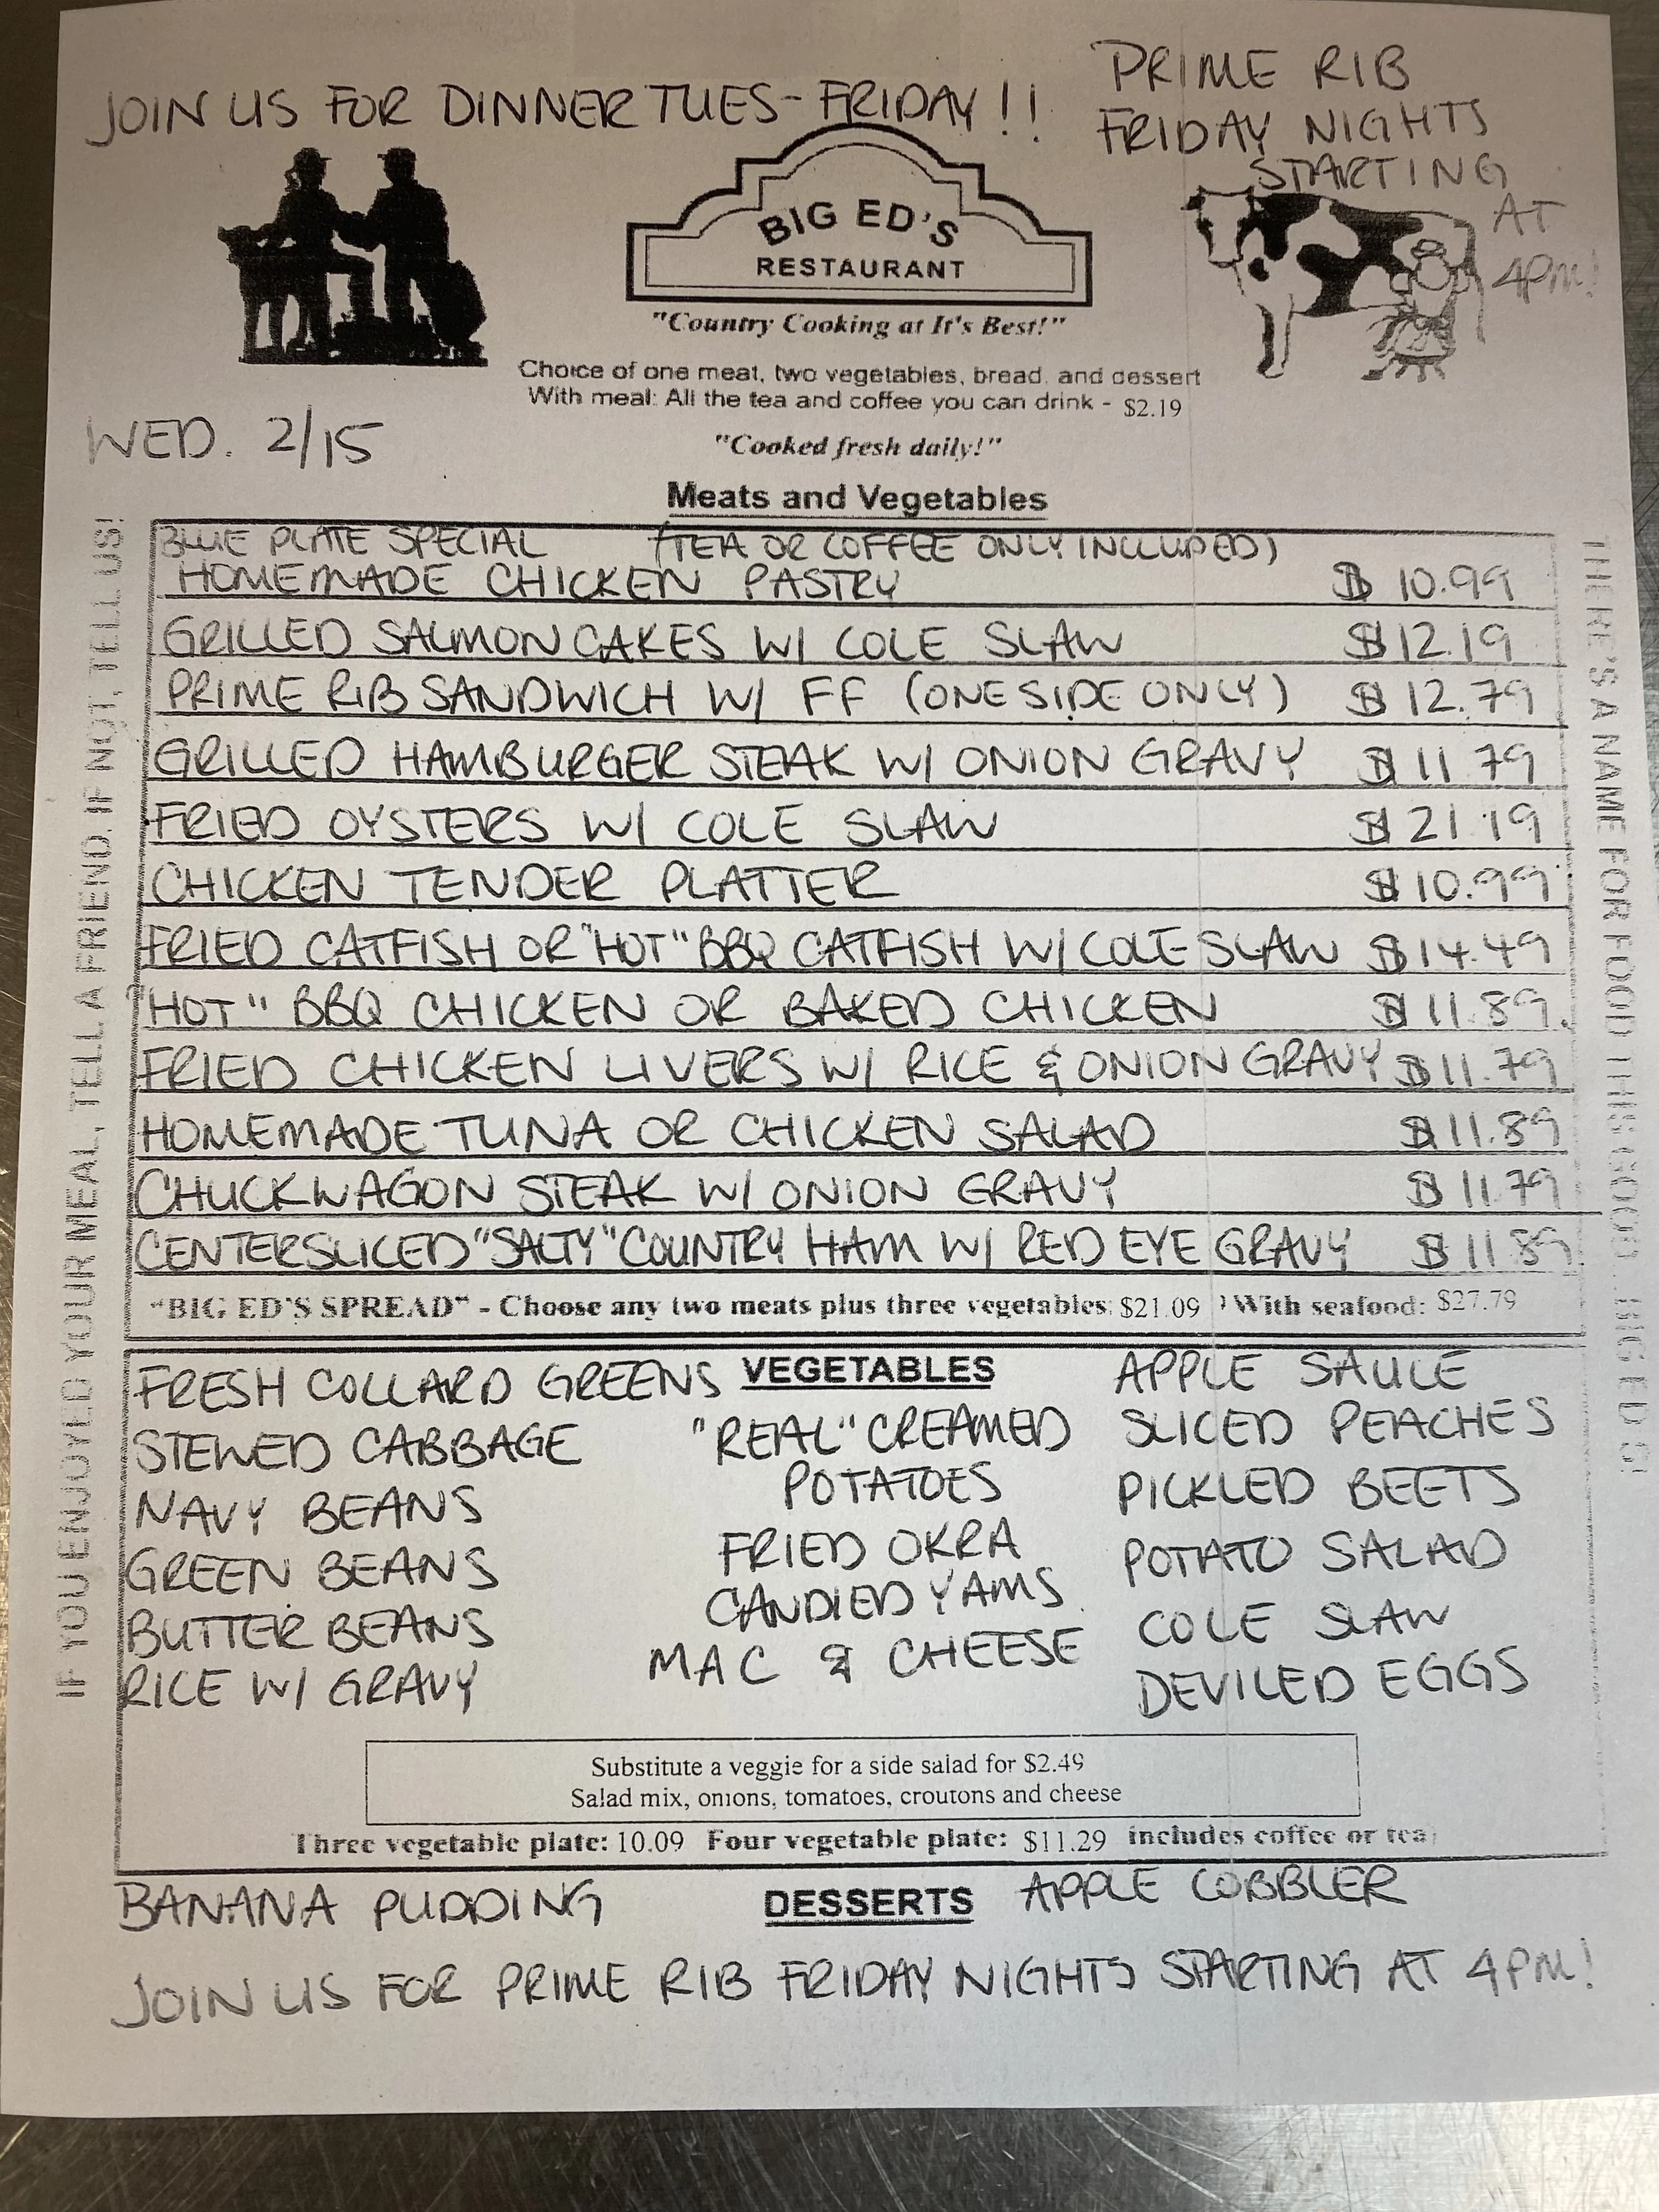 JOIN US FOR DINNER TUES-FRIDAY!!
PRIME RIB
FRIDAY NIGHTS
STARTING
AT
4PM!
BIG ED'S
RESTAURANT
"Country Cooking at It's Best!"
Choice of one meat, two vegetables, bread, and dessert
With meal: All the tea and coffee you can drink - $2.19
WED. 2/15
"Cooked fresh daily!"
Meats and Vegetables
BLUE PLATE SPECIAL (TEA OR COFFEE ONLY INCLUDED)
HOMEMADE CHICKEN PASTRY $ 10.99
GRILLED SALMON CAKES W/ COLE SLAW $12.19
PRIME RIB SANDWICH W/ FF (ONE SIDE ONLY) $ 12.79
GRILLED HAMBURGER STEAK W/ ONION GRAVY $11.79
FRIED OYSTERS W/ COLE SLAW $21.19
CHICKEN TENDER PLATTER $10.99
FRIED CATFISH OR "HOT" BBQ CATFISH W/ COLE SLAW $14.49
"HOT" BBQ CHICKEN OR BAKED CHICKEN $11.89
FRIED CHICKEN LIVERS W/ RICE & ONION GRAVY $11.79
HOMEMADE TUNA OR CHICKEN SALAD $11.89
CHUCKWAGON STEAK W/ ONION GRAVY $11.79
CENTERSLICED "SALTY" COUNTRY HAM W/ RED EYE GRAVY $11.89
"BIG ED'S SPREAD" - Choose any two meats plus three vegetables: $21.09 ) With seafood: $27.79
IF YOU ENJOYED YOUR MEAL, TELL A FRIEND. IF NOT, TELL US!
THERE'S A NAME FOR FOOD THIS GOOD...BIG ED'S!
VEGETABLES
FRESH COLLARD GREENS
STEWED CABBAGE
NAVY BEANS
GREEN BEANS
BUTTER BEANS
RICE W/ GRAVY
"REAL" CREAMED
POTATOES
FRIED OKRA
CANDIED YAMS
MAC & CHEESE
APPLE SAUCE
SLICED PEACHES
PICKLED BEETS
POTATO SALAD
COLE SLAW
DEVILED EGGS
Substitute a veggie for a side salad for $2.49
Salad mix, onions, tomatoes, croutons and cheese
Three vegetable plate: 10.09 Four vegetable plate: $11.29 includes coffee or tea
BANANA PUDDING DESSERTS APPLE COBBLER
JOIN US FOR PRIME RIB FRIDAY NIGHTS STARTING AT 4PM!